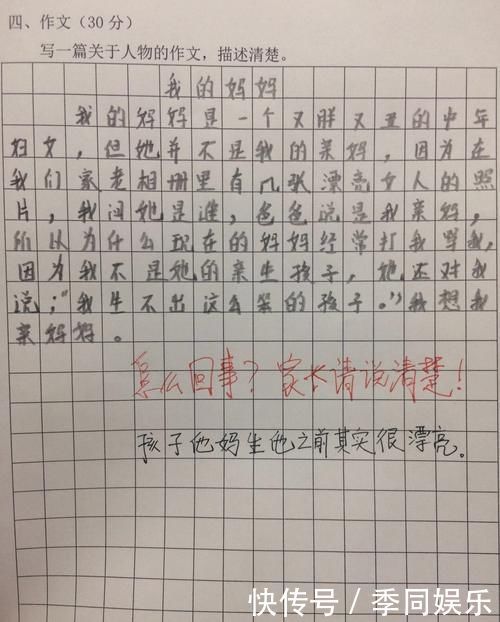 四、作文(30分)
写一篇关于人物的作文,描述清楚。
我的妈妈
我的妈妈是一个又胖又丑的中年
妇女,但她并不是我的亲妈,因为在
我们家老相册里有几张漂亮女人的照
片,我问她是谁,爸爸说是我亲妈,
所以为什么现在的妈妈经常打我骂我,
因为我不是她的亲生孩子,她还对我
说;"我生不出这么笨的孩子。"我想我
亲妈妈。
怎么回事?家长请说清楚!
孩子他妈生他之前其实很漂亮。
快传号/季同娱乐